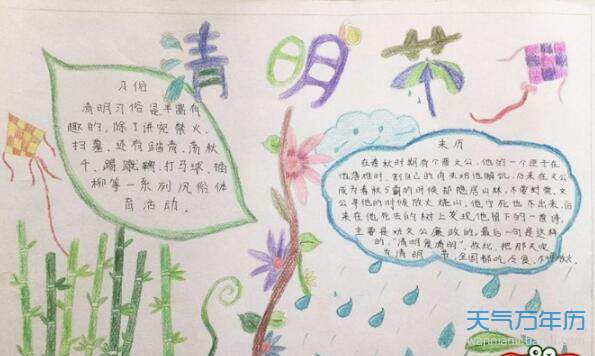 清明节
习俗
清明习俗是丰富有
趣的，除了讲究禁火、
扫墓，还有踏青、荡秋
千、踢蹴鞠、打马球、插
柳等一系列风俗体
育活动。
来历
在春秋时期有个晋文公，他的一个臣子在
他落难时，割自己的肉来给他腹饥，后来在文公
成为春秋5霸的时候却隐居山林，不要封赏，文
公寻他的时候放火烧山，他宁死也不出来，后
来在他死去的树上发现他留下的一首诗，
主要是劝文公廉政的，最后一句是这样
的，"清明复清明"，故此，把那天定
为清明节，全国都吃冷食，不准放火。
天气万年历
wannianli.tianqi.com